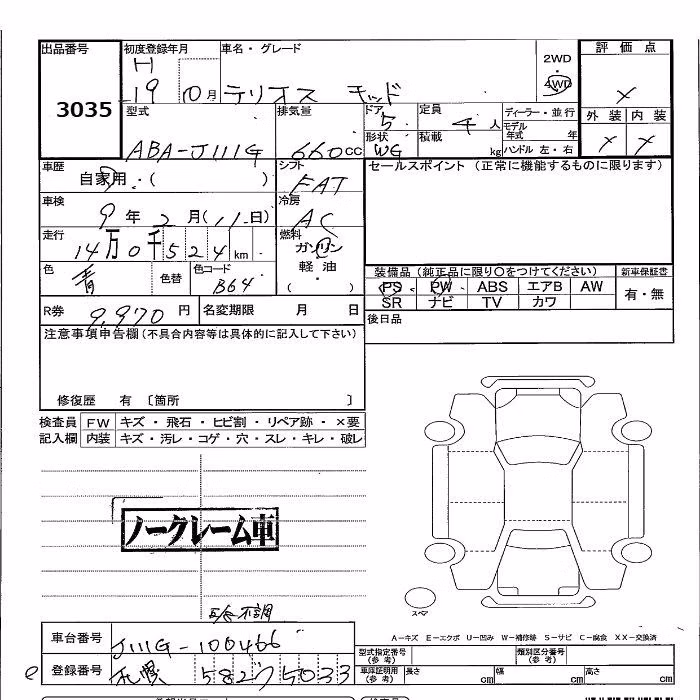 出品番号 初度登録年月 車名・グレード 2WD ・ 4WD 評価点
3035 H 19 10月 テリオス キッド ×
型式 排気量 ドア 5 定員 4人 ディーラー・並行 外装 内装
ABA-J111G 660cc 形状 WG 積載 kg モデル年式 年 ハンドル 左・右 × ×
車歴 自家用・( ) シフト FAT セールスポイント (正常に機能するものに限ります)
車検 9年 2月 (11日) 冷房 AC
走行 14万0千524km 燃料 ガソリン
色 青 色替 色コード B64 軽油 ( ・ )
装備品 (純正品に限り〇をつけてください) 新車保証書
PS PW ABS エアB AW 有・無
SR ナビ TV カワ
R券 9,970円 名変期限 月 日 後日品
注意事項申告欄 (不具合内容等は具体的に記入して下さい)
修復歴 有 〔箇所 〕
検査員 FW キズ・飛石・ヒビ割・リペア跡・×要
記入欄 内装 キズ・汚レ・コゲ・穴・スレ・キレ・破レ
ノークレーム車
不調
スペア
A-キズ E-エクボ U-凹み W-補修跡 S-サビ C-腐食 XX-交換済
車台番号 J111G-100466 型式指定番号 (参考) 類別区分番号 (参考)
登録番号 札幌 582 ワ 5033 車庫証明用 (参考) 長さ cm 幅 cm 高さ cm